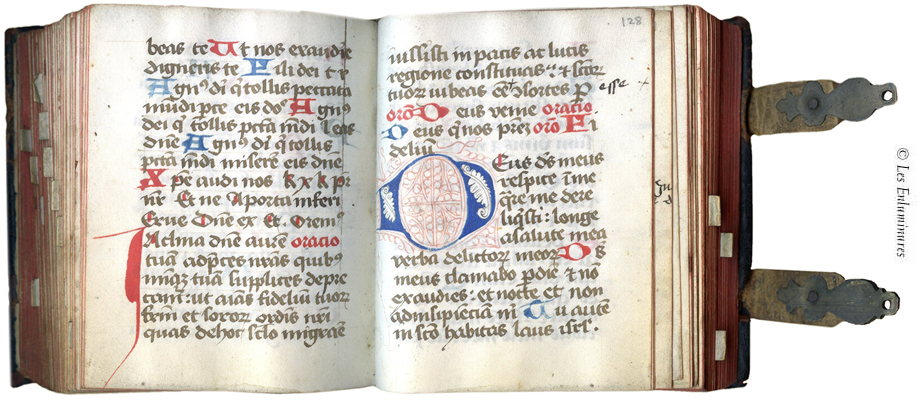 beas te Ut nos exaudire
digneris te Fili dei te r
Agnꝰ di q̄ tollis peccata
mūdi pce eis dn̄e Agnꝰ
dei q̄ tollis pctā mūdi
dn̄e Agnꝰ di q̄ tollis
pctā mūdi miserē eis dn̄e
Xpe audi nos k x k pr̄
nr̄ Et ne A porta inferi
Erue Dn̄e ex Et Oremꝰ
Inclina dn̄e aurē oracio
tuā ad p̄ces nr̄as quibꝰ
tuā supplices depre
cam : ut aīas fideliū tuor
frm̄ et soror ordīs nr̄i
quas de hoc sclo migrare
128
iussisti in pacis ac lucis
regione constituas : & scōr
tuor iubeas cōsortes
esse
orō Deus venie oracio
Deus q̄ nos orō Fi
deliū
Deus ds̄ meus
respice ī me
q̄re me dere
liq̄sti : longe
a salute mea
verba delictor meor Ds̄
meus clamabo p die & nō
exaudies : et nocte et non
ad insipienciā m Tu autē
in scō habitas laus isrl .
© Les Enluminures